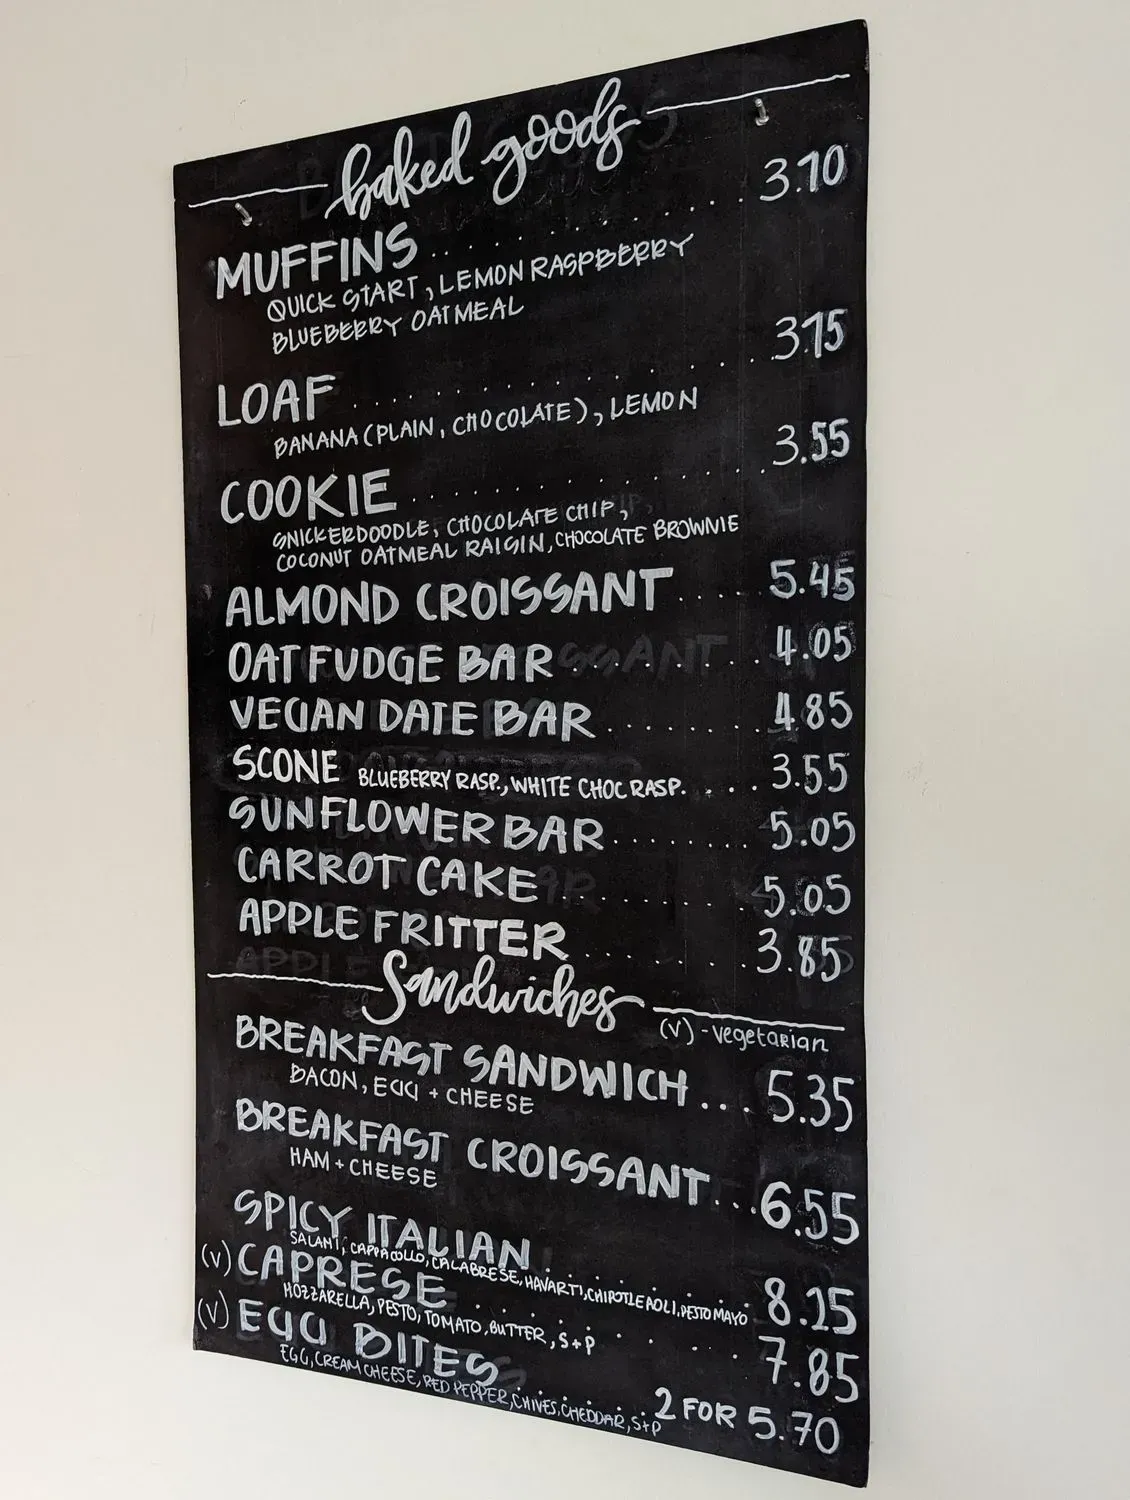 baked goods
MUFFINS . . . . . . . . . . . . 3.10
QUICK START, LEMON RASPBERRY
BLUEBERRY OATMEAL
LOAF . . . . . . . . . . . . 3.15
BANANA (PLAIN, CHOCOLATE), LEMON
COOKIE . . . . . . . . . . . . 3.55
SNICKERDOODLE, CHOCOLATE CHIP,
COCONUT OATMEAL RAISIN, CHOCOLATE BROWNIE
ALMOND CROISSANT ..... 5.45
OAT FUDGE BAR . . . . . . . . 4.05
VEGAN DATE BAR . . . . . . . 4.85
SCONE BLUEBERRY RASP., WHITE CHOC RASP. . . . . 3.55
SUNFLOWER BAR ......... 5.05
CARROT CAKE . . . . . . . . . 5.05
APPLE FRITTER . . . . . . . 3.85
Sandwiches
(V) - vegetarian
BREAKFAST SANDWICH ... 5.35
BACON, EGG + CHEESE
BREAKFAST CROISSANT ... 6.55
HAM + CHEESE
SPICY ITALIAN . . . . . . . . 8.25
SALAMI, CAPPACOLLO, CALABRESE, HAVARTI, CHIPOTLE AOLI, PESTO MAYO
(V) CAPRESE . . . . . . . . . 7.85
MOZZARELLA, PESTO, TOMATO, BUTTER, S+P
(V) EGG BITES . . . . . . . 2 FOR 5.70
EGG, CREAM CHEESE, RED PEPPER, CHIVES, CHEDDAR, S+P